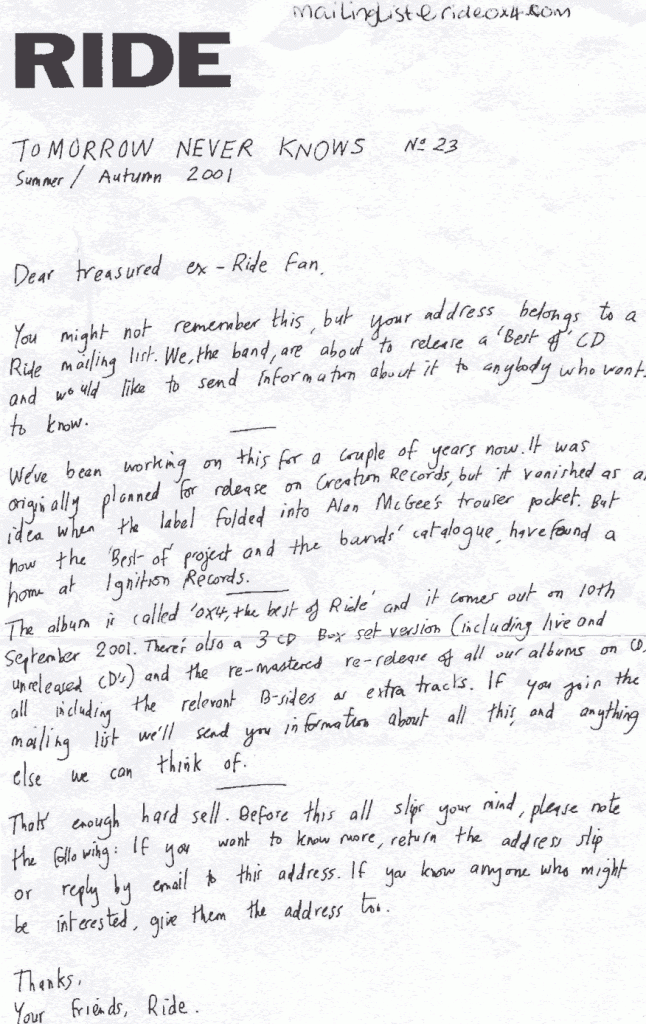 mailinglist@rideox4.com
RIDE
TOMORROW NEVER KNOWS Nº 23
Summer / Autumn 2001
Dear treasured ex-Ride fan,
You might not remember this, but your address belongs to a
Ride mailing list. We, the band, are about to release a 'Best of' CD
and would like to send information about it to anybody who wants
to know.
We've been working on this for a couple of years now. It was
originally planned for release on Creation Records, but it vanished as a
idea when the label folded into Alan McGee's trouser pocket. But
now the 'Best of' project and the bands' catalogue, have found a
home at Ignition Records.
The album is called 'OX4, the best of Ride' and it comes out on 10th
September 2001. There's also a 3 CD Box set version (including live and
unreleased CD's) and the re-mastered re-release of all our albums on CD,
all including the relevant B-sides as extra tracks. If you join the
mailing list we'll send you information about all this, and anything
else we can think of.
Thats enough hard sell. Before this all slips your mind, please note
the following: If you want to know more, return the address slip
or reply by email to this address. If you know anyone who might
be interested, give them the address too.
Thanks,
Your friends, Ride.